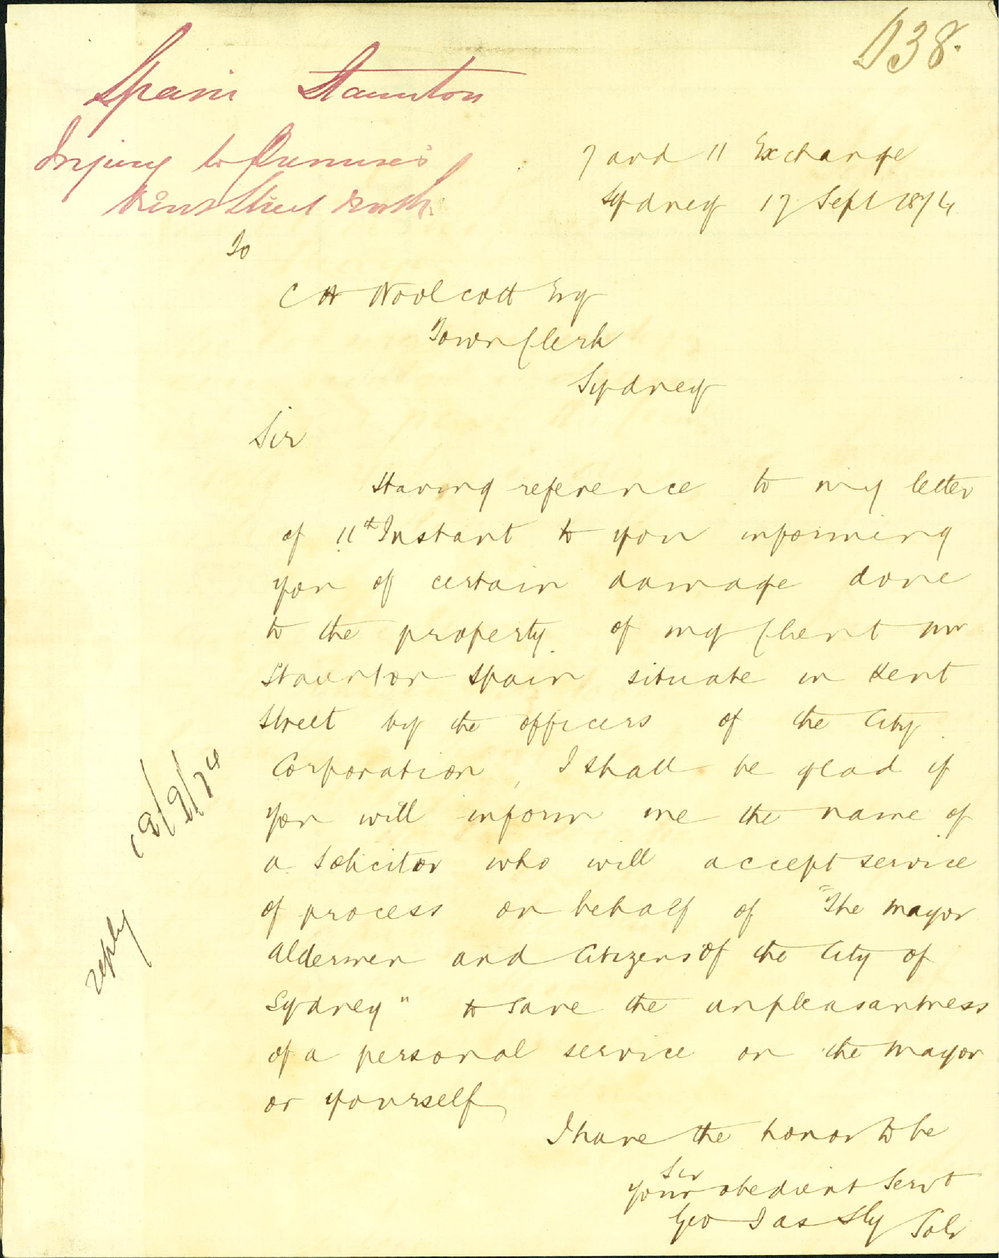 138.
Spain Staunton
Injury to Premises
Kent Street North.
7 and 11 Exchange
Sydney 17 Sept 1874
To
C H Woolcott Esq
Town Clerk
Sydney
Sir
Having reference to my letter
of 11th Instant to you informing
you of certain damage done
to the property of my Client Mr
Staunton Spain situate in Kent
Street by the officers of the City
Corporation, I shall be glad if
you will inform me the name of
a Solicitor who will accept service
of process on behalf of "The Mayor
Aldermen and Citizens of the City of
Sydney" to save the unpleasantness
of a personal service on the Mayor
or yourself
I have the honor to be
Sir
Your obedient Servt
Geo Jas Sly Solr
reply 18/9/74